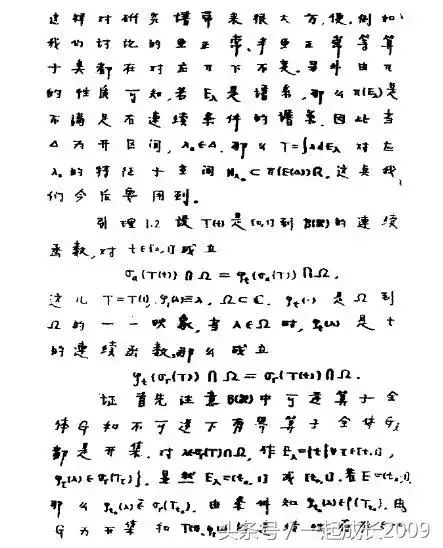 这样对研究谱带来很大方便,例如
我们讨论的亚正常、半亚正常等算
子类都在对应π下不变。另外由π
的性质可知,若Eλ是谱系,那么π(Eλ)是
不满足右连续条件的谱系。因此当
Δ为开区间,λ₀∈Δ,那么T=∫λdEλ对应
λ₀的特征子空间 ⊂π(E(Δ))。这点我
们今后要用到。
引理1.2 设T(t)是[0,1]到的连续
函数,对t∈[0,1]成立
σa(T(t))∩Ω=φt(σa(T))∩Ω,
这儿T=T(0),φ₀(λ)≡λ,Ω⊂C,φt(·)是Ω到
Ω的一一映象,当λ∈Ω时,φt(λ)是t
的连续函数,那么成立
φt(σr(T))∩Ω=σr(T(t))∩Ω.
证 首先注意中可逆算子全
体G和不可逆下有界算子全体
都是开集,对∩Ω,作Eλ=
φt(λ)∈σr(Tt)},显然Eλ=[0,1]或[0,t₀),若E=[0,t₀),
那么σr(Tt₀),由条件知φt₀(λ)∈ρ(Tt₀),由
G为开集和
头条号/一起成长2009